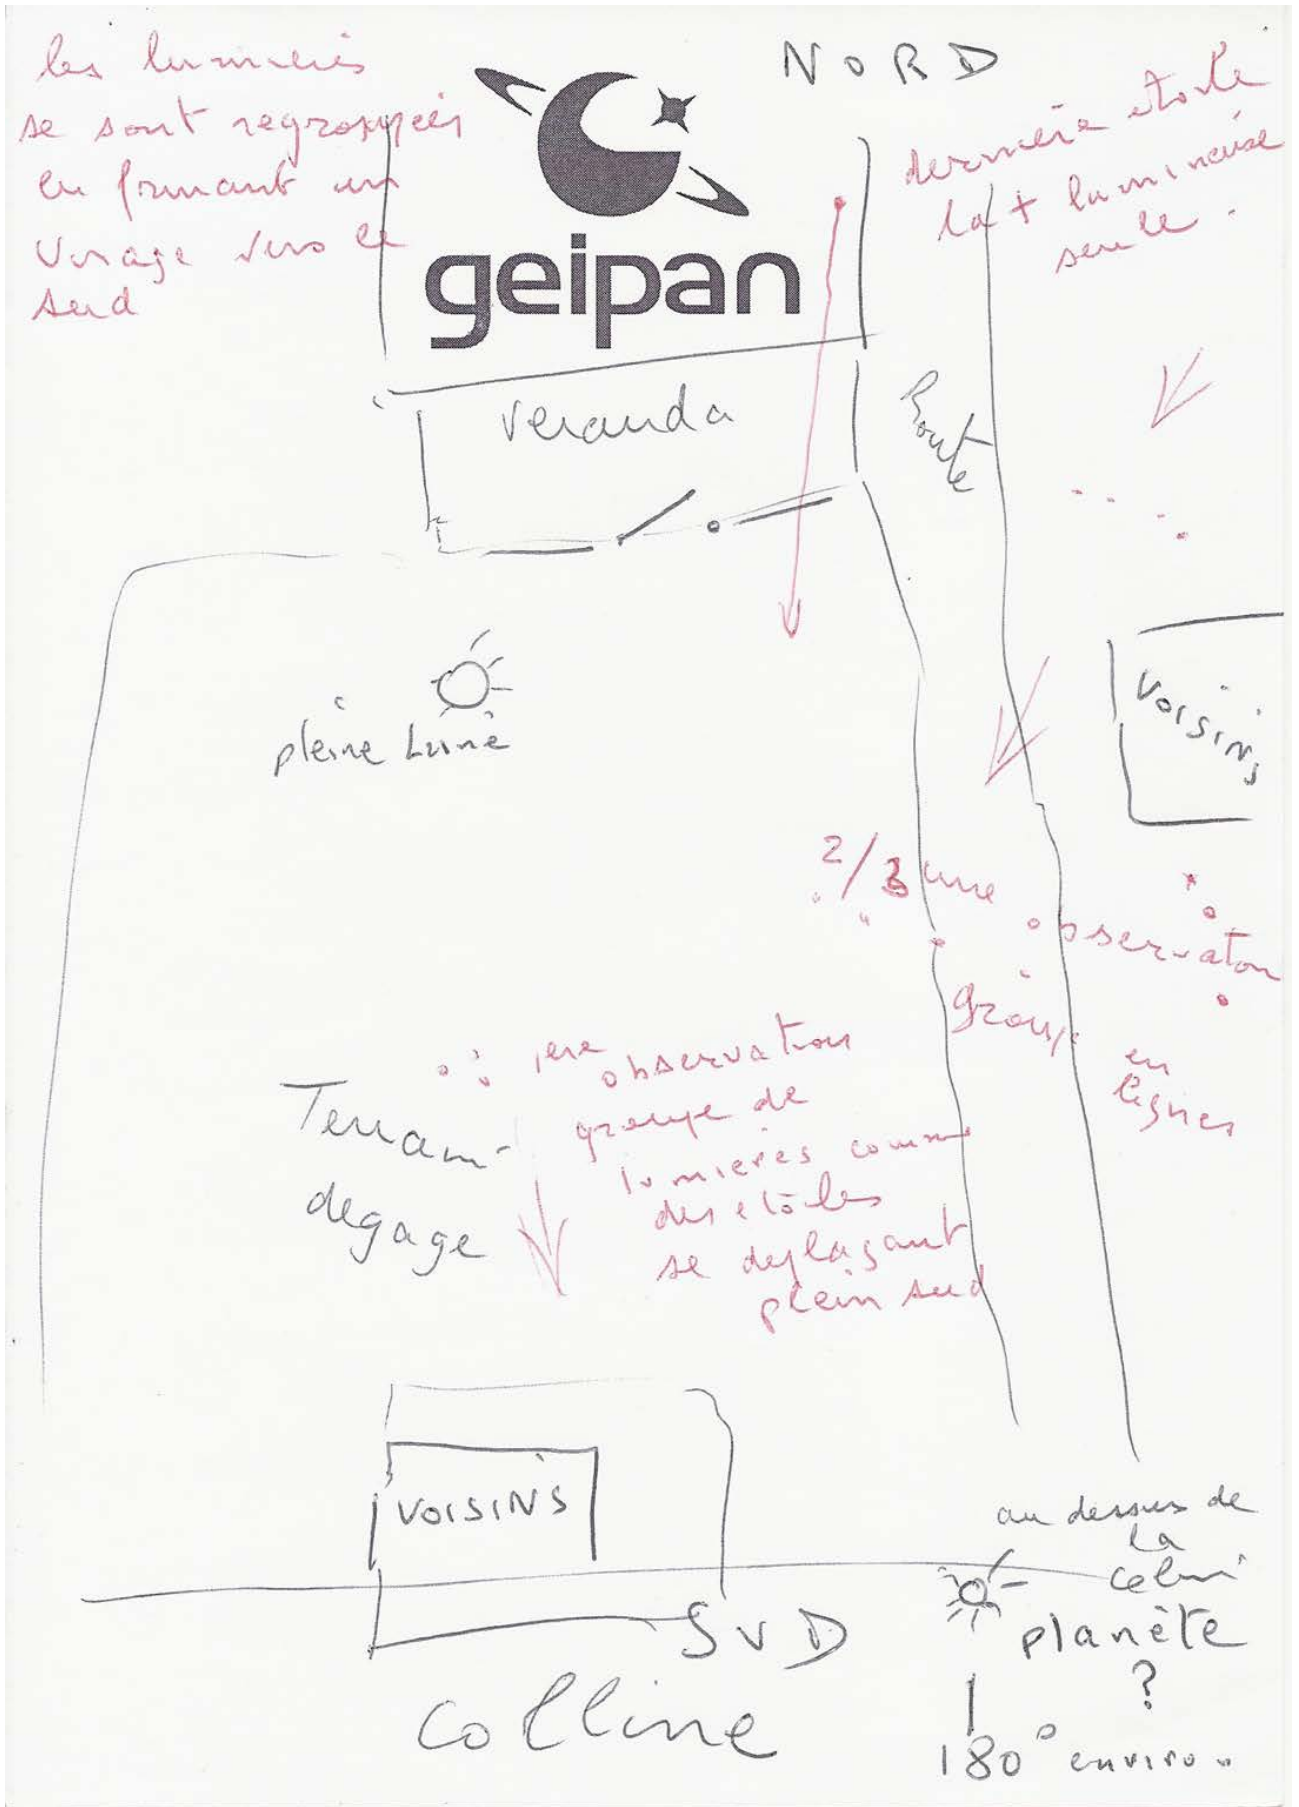 les lumieres
se sont regroupées
en formant un
virage vers le
sud
geipan
NORD
derniere etoile
la + lumineuse
seule.
veranda
Route
pleine Lune
voisins
2/3 une
observaton
group
en
lignes
1ere
observation
groupe de
lumieres comme
des etoiles
se deplaçant
plein sud
Terrain
degage
VOISINS
SUD
Colline
au dessus de
la
planète
?
180° environ